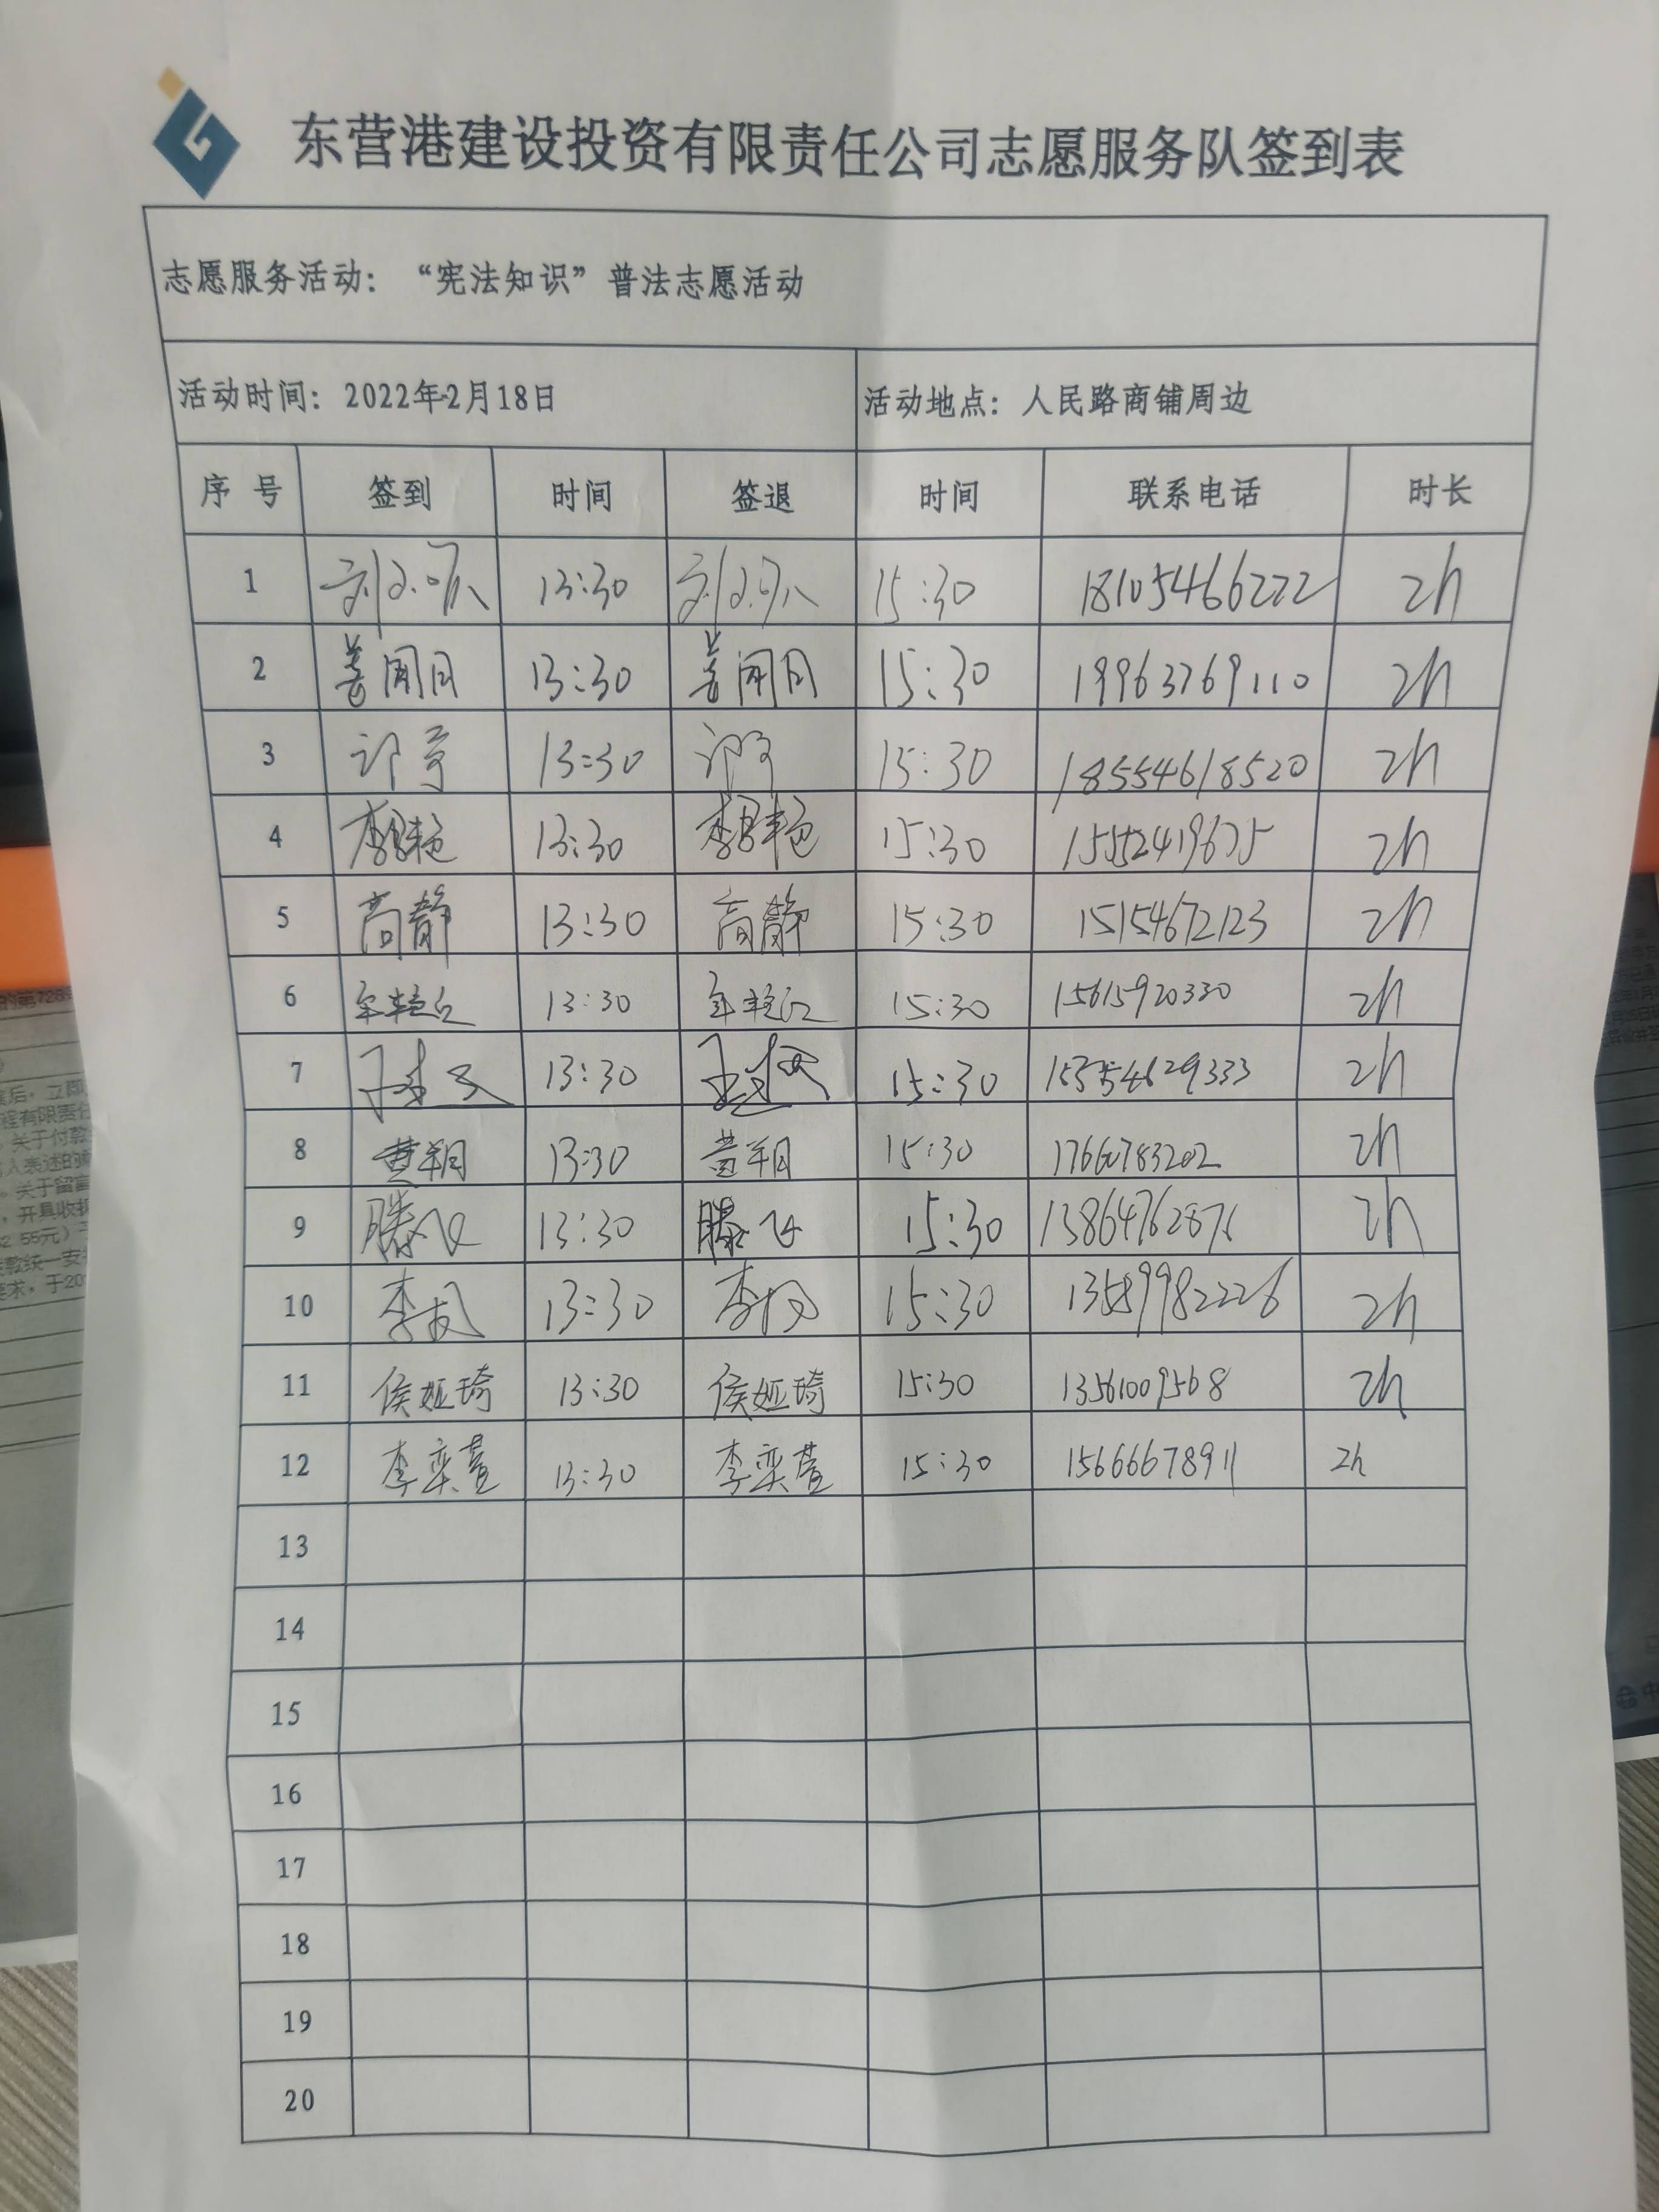 东营港建设投资有限责任公司志愿服务队签到表
志愿服务活动：“宪法知识”普法志愿活动
活动时间：2022年2月18日 活动地点：人民路商铺周边
序 号 签到 时间 签退 时间 联系电话 时长
1 13:30 15:30 18105466222 2h
2 姜闻日 13:30 姜闻日 15:30 19963769110 2h
3 13:30 15:30 18554618520 2h
4 13:30 15:30 15552419675 2h
5 高静 13:30 高静 15:30 15154672123 2h
6 13:30 15:30 15615920330 2h
7 13:30 15:30 2h
8 黄翔 13:30 黄翔 15:30 17660783202 2h
9 滕飞 13:30 滕飞 15:30 13864762876 2h
10 13:30 15:30 13589982226 2h
11 侯娅琦 13:30 侯娅琦 15:30 13561009568 2h
12 李奕萱 13:30 李奕萱 15:30 15666678911 2h
13
14
15
16
17
18
19
20